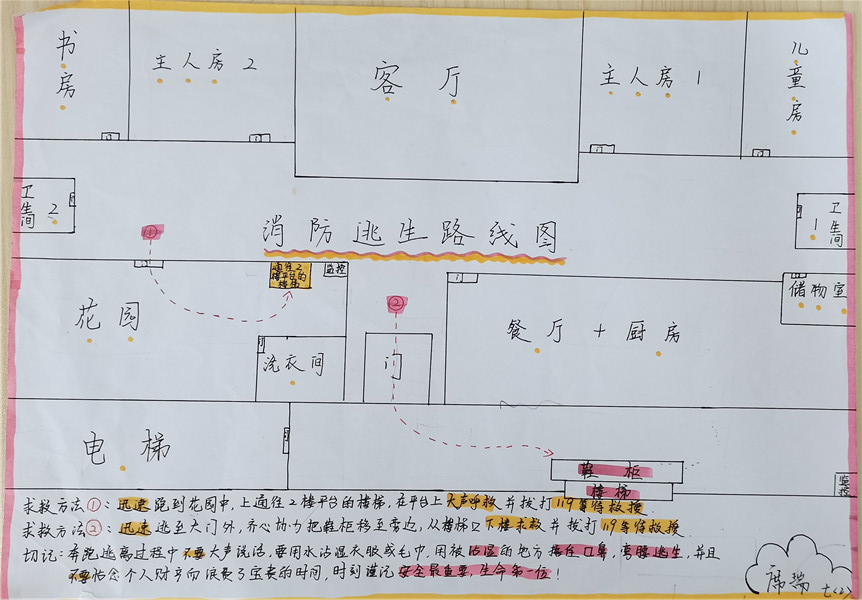 书房
主人房2
客厅
主人房1
儿童房
卫生间2
卫生间1
①
消防逃生路线图
通往2楼平台的楼梯
监控
②
储物室
花园
餐厅+厨房
洗衣间
门
电梯
鞋柜
楼梯
监控
求救方法①:迅速跑到花园中,上通往2楼平台的楼梯,在平台上大声呼救并拨打119等待救援
求救方法②:迅速逃至大门外,齐心协力把鞋柜移至旁边,从楼梯口下楼求救并拨打119等待救援
切记:奔跑逃离过程中不要大声说话,要用水沾湿衣服或毛巾,用被沾湿的地方捂住口鼻,弯腰逃生,并且
不要怕念个人财产而浪费了宝贵的时间,时刻谨记安全最重要,生命第一位!
席瑞
七(2)